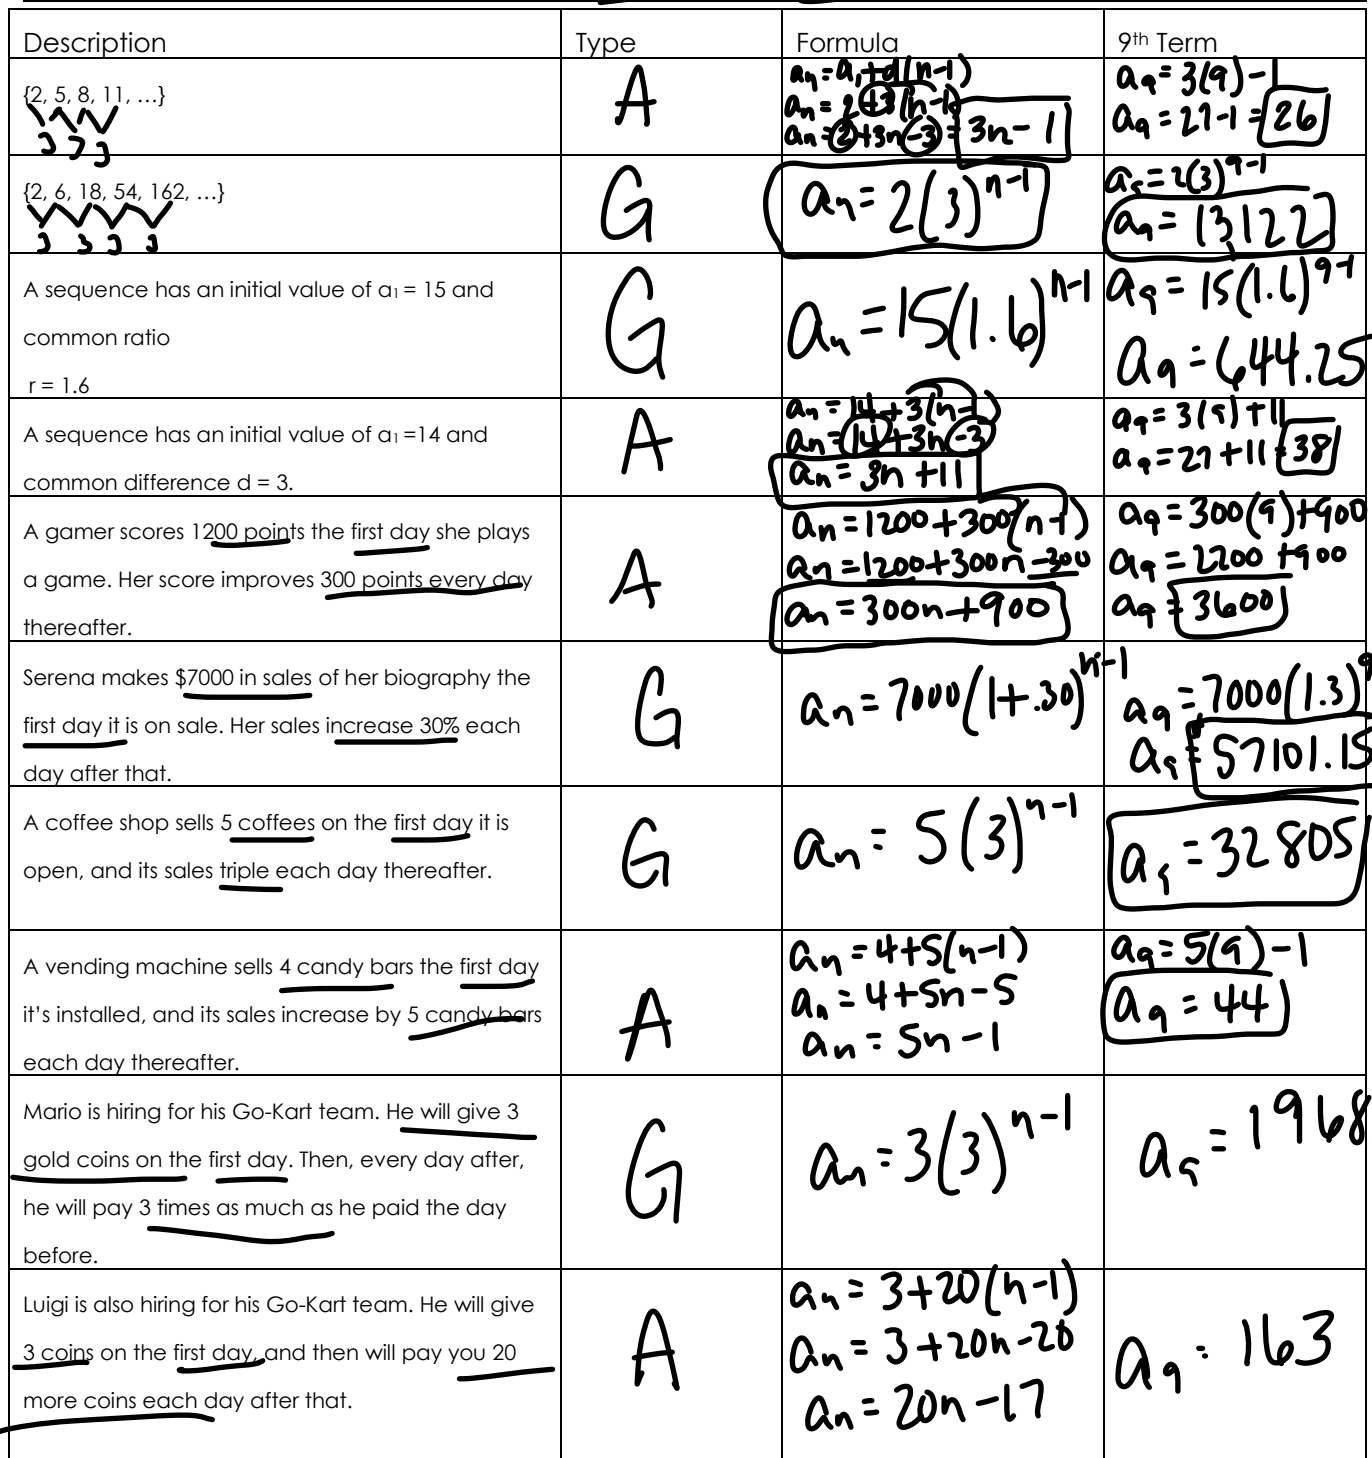 Description Type Formula 9th Term
{2, 5, 8, 11, …}
3 3 3
A
an = a1 + d(n-1)
an = 2+3(n-1)
an = 2+3n-3 = 3n-1
a9 = 3(9)-1
a9 = 27-1 = 26
{2, 6, 18, 54, 162, …}
3 3 3 3
G
an = 2(3)^n-1
a9 = 2(3)^9-1
a9 = 13122
A sequence has an initial value of a1 = 15 and
common ratio
r = 1.6
G
an = 15(1.6)^n-1
a9 = 15(1.6)^9-1
a9 = 644.25
A sequence has an initial value of a1 =14 and
common difference d = 3.
A
an = 14+3(n-1)
an = 14+3n-3
an = 3n+11
a9 = 3(9)+11
a9 = 27+11 = 38
A gamer scores 1200 points the first day she plays
a game. Her score improves 300 points every day
thereafter.
A
an = 1200+300(n-1)
an = 1200+300n-300
an = 300n+900
a9 = 300(9)+900
a9 = 2700+900
a9 = 3600
Serena makes $7000 in sales of her biography the
first day it is on sale. Her sales increase 30% each
day after that.
G
an = 7000(1+.30)^n-1
a9 = 7000(1.3)^9
a9 = 57101.15
A coffee shop sells 5 coffees on the first day it is
open, and its sales triple each day thereafter.
G
an = 5(3)^n-1
a9 = 32805
A vending machine sells 4 candy bars the first day
it’s installed, and its sales increase by 5 candy bars
each day thereafter.
A
an = 4+5(n-1)
an = 4+5n-5
an = 5n-1
a9 = 5(9)-1
a9 = 44
Mario is hiring for his Go-Kart team. He will give 3
gold coins on the first day. Then, every day after,
he will pay 3 times as much as he paid the day
before.
G
an = 3(3)^n-1
a9 = 1968
Luigi is also hiring for his Go-Kart team. He will give
3 coins on the first day, and then will pay you 20
more coins each day after that.
A
an = 3+20(n-1)
an = 3+20n-20
an = 20n-17
a9 = 163